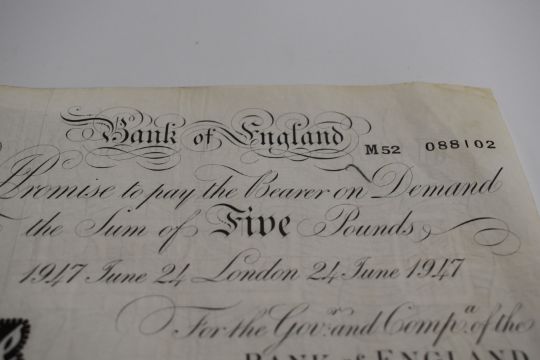 Bank of England
M52 088102
Promise to pay the Bearer on Demand
the Sum of Five Pounds
1947 June 24 London 24 June 1947
For the Govr. and Compa. of the
BANK of ENGLAND